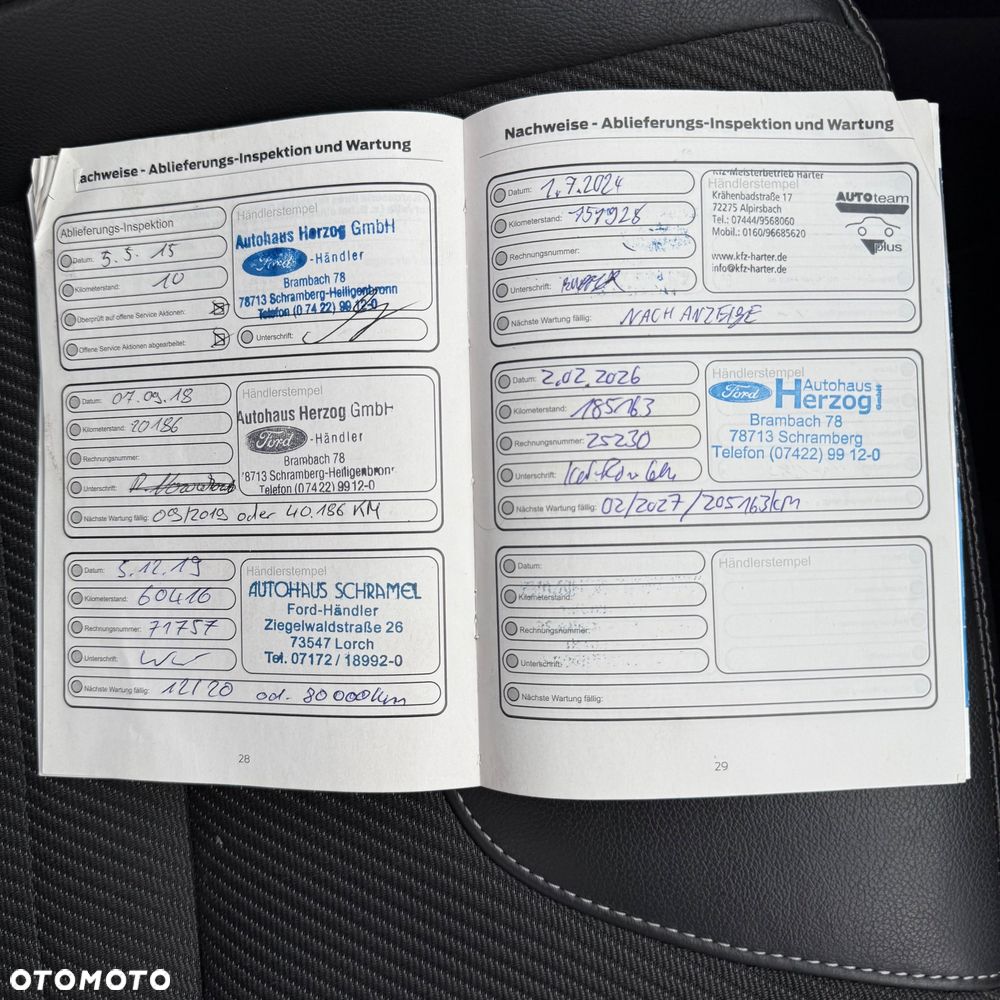 Nachweise - Ablieferungs-Inspektion und Wartung
Ablieferungs-Inspektion
Datum: 5.5.15
Kilometerstand: 10
Überprüft auf offene Service Aktionen:
Offene Service Aktionen abgearbeitet:
Händlerstempel
Autohaus Herzog GmbH
Ford -Händler
Brambach 78
78713 Schramberg-Heiligenbronn
Telefon (0 74 22) 99 12-0
Unterschrift:
Datum: 07.09.18
Kilometerstand: 20186
Rechnungsnummer:
Unterschrift:
Händlerstempel
Autohaus Herzog GmbH
Ford -Händler
Brambach 78
78713 Schramberg-Heiligenbronn
Telefon (0 74 22) 99 12-0
Nächste Wartung fällig: 09/2019 oder 40.186 KM
Datum: 5.12.19
Kilometerstand: 60416
Rechnungsnummer: 71757
Unterschrift:
Händlerstempel
AUTOHAUS SCHRAMEL
Ford-Händler
Ziegelwaldstraße 26
73547 Lorch
Tel. 07172 / 18992-0
Nächste Wartung fällig: 12/20 od. 80000km
28
Nachweise - Ablieferungs-Inspektion und Wartung
Datum: 1.7.2024
Kilometerstand: 151928
Rechnungsnummer:
Unterschrift:
Händlerstempel
Kfz-Meisterbetrieb Harter
Krähenbadstraße 17
72275 Alpirsbach
Tel.: 07444/9568060
Mobil.: 0160/96685620
www.kfz-harter.de
info@kfz-harter.de
AUTOteam
plus
Nächste Wartung fällig: NACH ANZEIGE
Datum: 2.02.2026
Kilometerstand: 185163
Rechnungsnummer: 25230
Unterschrift:
Händlerstempel
Ford Autohaus
Herzog GmbH
Brambach 78
78713 Schramberg
Telefon (07422) 99 12-0
Nächste Wartung fällig: 02/2027 / 205163km
Datum:
Kilometerstand:
Rechnungsnummer:
Unterschrift:
Händlerstempel
Nächste Wartung fällig:
29
OTOMOTO